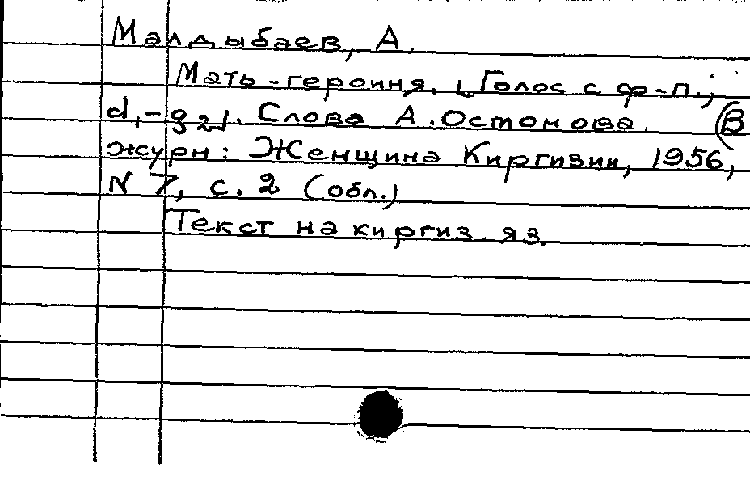 Малдыбаев, А.
Мать-героиня. [Голос с ф-п.;
d₁-g₂]. Слова А. Остонова. (В
журн: Женщина Киргизии, 1956,
N 7, с. 2 (обл.)
Текст на киргиз. яз.